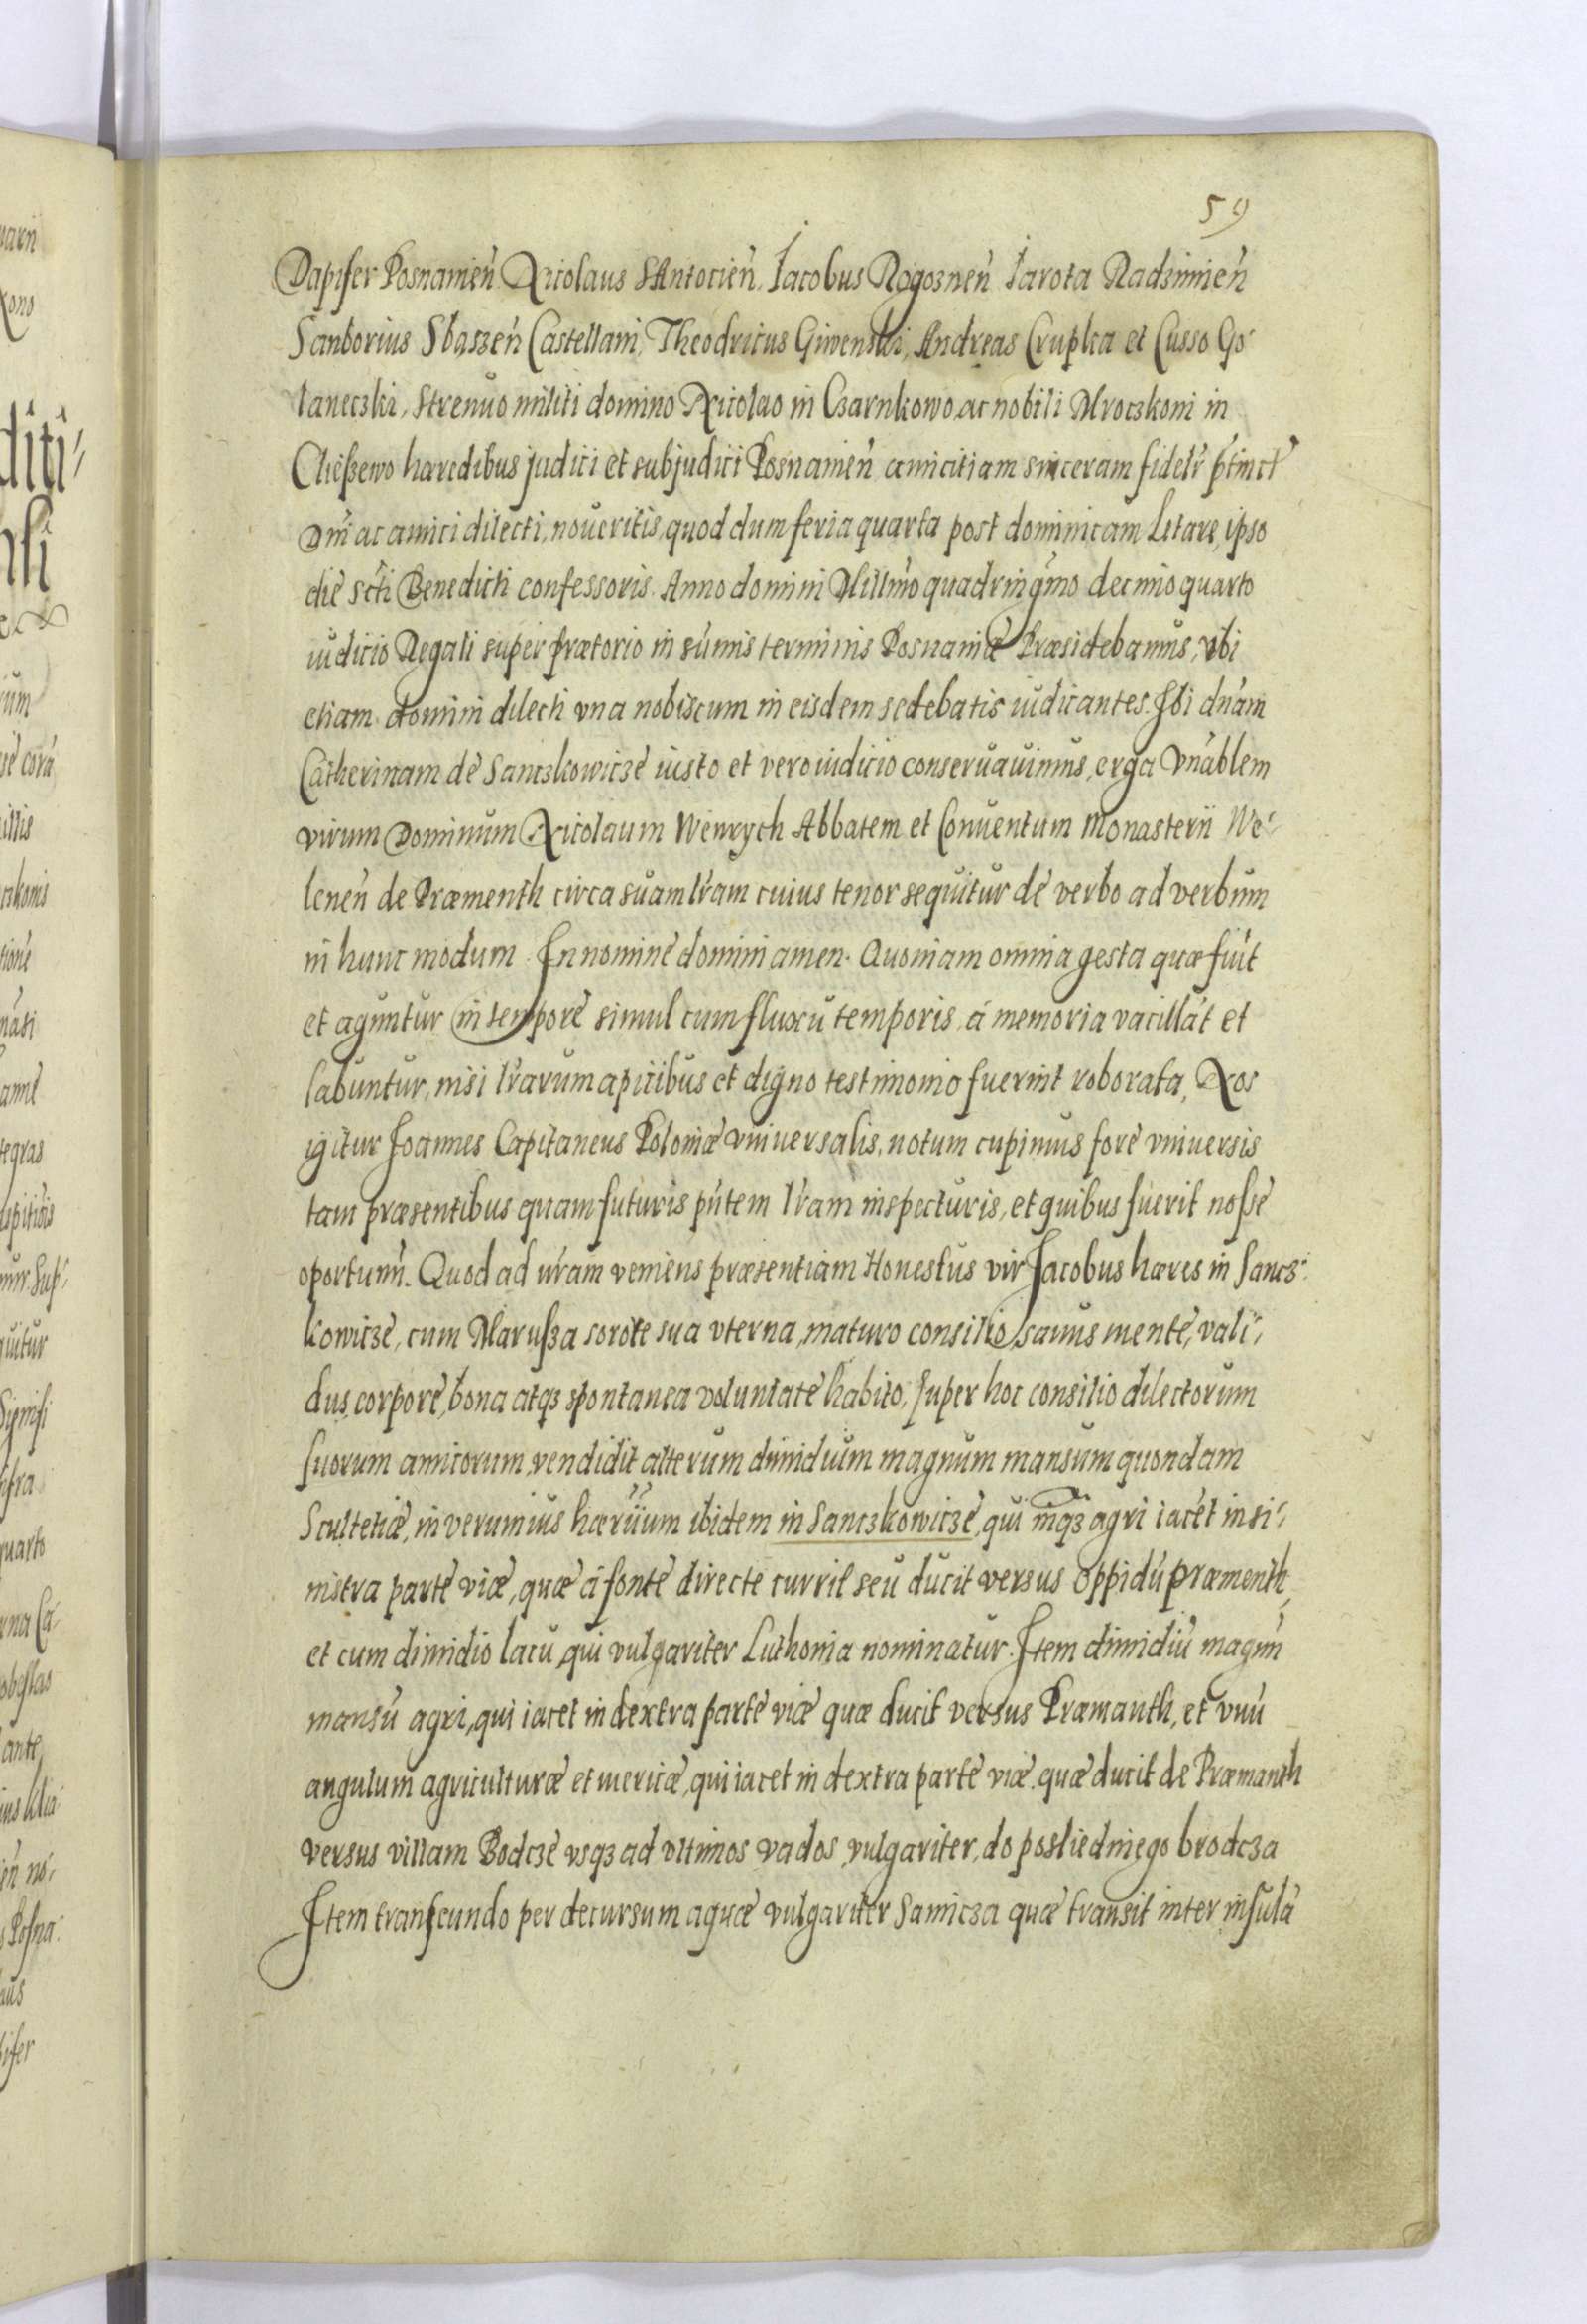 59
Dapifer Posnanień Nicolaus SAntocień, Jacobus Rogozneń Jarota Nadzimień
Sanborius Sbąszeń Castellani, Theodricus Giwenski, Andreas Crupka et Cusso Go-
laneczki, strenuo militi domino Nicolao in Czarnkowo, ac nobili Mroczkoni in
Chießewo haredibus judici et subjudici Posnanień amicitiam sinceram fidelr ptinct
Dm̃i ac amici dilecti, noueritis, quod dum feria quarta post dominicam Letare, ipso
die sc̃ti Benedicti confessoris. Anno domini Millmo quadringmo decimo quarto
iudicio Regali super prætorio in sum̃is terminis Posnaniæ Præsidebamus, vbi
etiam domini dilecti vna nobiscum in eisdem sedebatis iudicantes. Ibi dnám
Catherinam de Sanczkowicze iusto et vero iudicio conseruauimus, erga Vnáblem
virum Dominum Nicolaum Wenrych Abbatem et Conuentum Monasterii We-
leneń de Præmenth circa suam lr̃am cuius tenor sequitur de verbo ad verbum
in hunc modum. In nomine domini amen. Quoniam omnia gesta quæ fiũt
et aguntur in tempore simul cum fluxu temporis, á memoria vacillãt et
labuntur, nisi lr̃arum apicibus et digno testimonio fuerint roborata, Nos
igitur Joannes Capitaneus Poloniæ vniuersalis, notum cupimus fore vniuersis
tam præsentibus quam futuris pñtem lr̃am inspecturis, et quibus fuerit noſse
oportunũ. Quod ad nr̃am veniens præsentiam Honestus vir Jacobus hæres in Sancz-
kowicze, cum Maruſza sorore sua vterna, maturo consilio, sanus mente, vali-
dus corpore, bona atqз spontanea voluntate habito, super hoc consilio dilectorum
suorum amicorum, vendidit alterum dimidium magnum mansum quondam
Scultetiæ, in verum ius hærẽdũm ibidem in Sanczkowicze, qui mqз agri iacet in si-
nistra parte viæ, quæ á fonte directe currit seu ducit versus oppidũ præmenth,
et cum dimidio lacu, qui vulgariter Luthonia nominatur. Item dimidiũ magnũ
mansũ agri, qui iacet in dextra parte viæ quæ ducit versus Præmanth, et vnũ
angulum agriculturæ et mericæ, qui iacet in dextra parte viæ, quæ ducit de Præmanth
versus villam Bodcze vsqз ad vltimos vados, vulgariter, do posliedniego brodcza
Item transeundo per decursum aquæ vulgariter Samicza quæ transit inter insulã